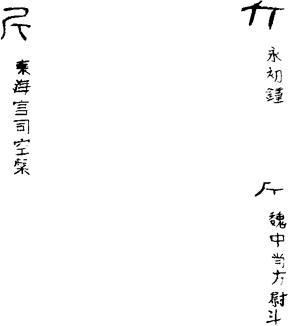 永初鍾
斤
魏中尚方尉斗
東海宮司空槃